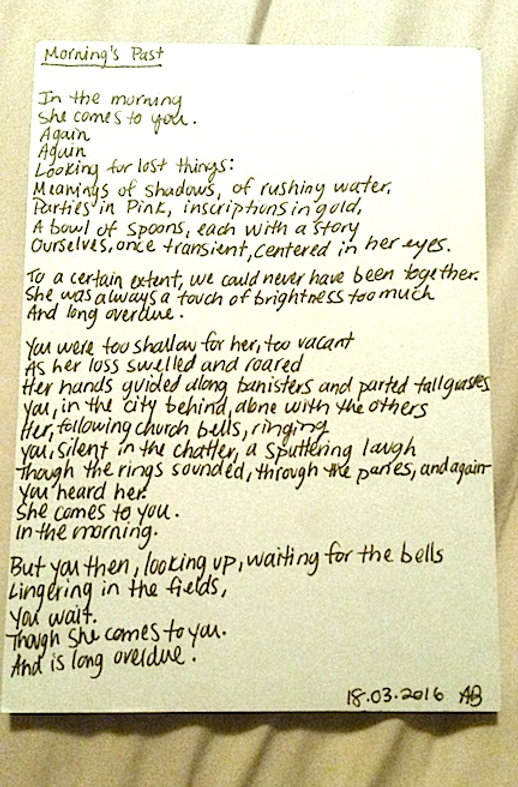 Morning's Past
In the morning
She comes to you.
Again
Again
Looking for lost things:
Meanings of shadows, of rushing water,
Parties in Pink, inscriptions in gold,
A bowl of spoons, each with a story
Ourselves, once transient, centered in her eyes.
To a certain extent, we could never have been together.
She was always a touch of brightness too much
And long overdue.
You were too shallow for her, too vacant
As her loss swelled and roared
Her hands guided along banisters and parted tall grasses
You, in the city behind, alone with the others
Her, following church bells, ringing
You, silent in the chatter, a sputtering laugh
Though the rings sounded, through the panes, and again
You heard her.
She comes to you.
In the morning.
But you then, looking up, waiting for the bells
Lingering in the fields,
You wait.
Though she comes to you.
And is long overdue.
18.03.2016 AB